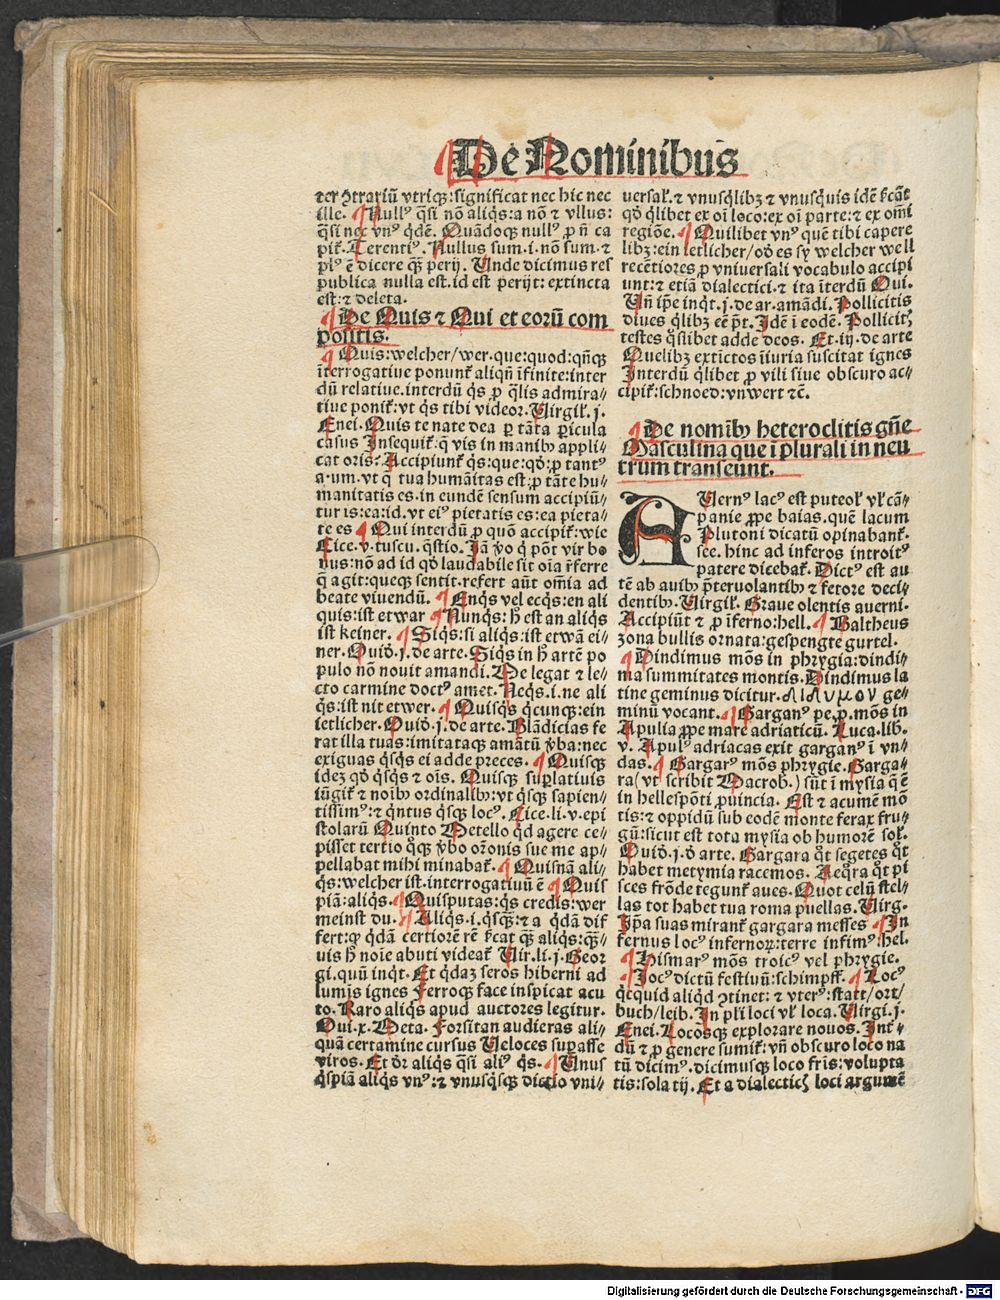 De Nominibus
ter ꝯtrariū vtriqꝫ:significat nec hic nec
ille. Nullꝰ q̄si nō aliq̄s:a nō ⁊ vllus:
q̄si nec vnꝰ q̄dē. Quādoqꝫ nullꝰ ꝓ nō ca
pit᷑. Terentiꝰ. Nullus sum.i.nō sum.⁊
plꝰ ē dicere q̄ꝫ perij. Unde dicimus res
publica nulla est.id est perijt:extincta
est:⁊ deleta.
De Quis ⁊ Qui et eorū com
positis.
Quis:welcher/wer.que:quod:qn̄qꝫ
īterrogatiue ponunt᷑ aliqn̄ īfinite:inter
dū relatiue.interdū q̄s ꝓ q̄lis admira-
tiue ponit᷑:vt q̄s tibi videor.Uirgil᷑.j.
Enei.Quis te nate dea ꝑ tāta ꝑicula
casus Insequit᷑:q̄ vis in manibꝰ appli-
cat oris:Accipiunt᷑ q̄s:que:qd̄:ꝓ tantꝰ
a.um.vt q̄ tua humāitas est:ꝓ tāte hu-
manitatis es.in eundē sensum accipiū-
tur is:ea:id.vt eiꝰ pietatis es:ea pieta-
te es Qui interdū ꝓ quō accipit᷑:wie
Cice.v.tuscu.q̄stio.Iā ꝟo q̄ pōt vir bo
nus:nō ad id qd̄ laudabile sit oīa r̄ferre
q̄ agit:queqꝫ sentit.refert aūt omīa ad
beate viuendū. Enq̄s vel ecq̄s:en ali
quis:ist etwar Nunq̄s:h̄ est an aliq̄s
ist keiner. Siq̄s:si aliq̄s:ist etwā ei-
ner.Ouid.j.de arte.Siq̄s in h̄ artē po
pulo nō nouit amandi.Me legat ⁊ le-
cto carmine doctꝰ amet.Neq̄s.i.ne ali
q̄s:ist nit etwer. Quisq̄s q̄cunqꝫ:ein
ietlicher.Ouid.j.de arte.Blādicias fe
rat illa tuas:imitataqꝫ amātū ꝟba:nec
exiguas q̄sq̄s ei adde preces. Quisqꝫ
idez qd̄ q̄sq̄s ⁊ oīs. Quisqꝫ suplatiuis
iūgit᷑ ⁊ noībꝰ ordinalibꝰ:vt q̄sqꝫ sapien-
tissimꝰ:⁊ q̄ntus q̄sqꝫ locꝰ.Cice.li.v.epi
stolarū Quinto Metello q̄d agere ce-
pisset tertio q̄qꝫ ꝟbo or̄onis sue me ap-
pellabat mihi minabat᷑. Quisnā ali-
q̄s:welcher ist.interrogatiuū ē Quis
piā:aliq̄s. Quisputas:q̄s credis:wer
meinst du. Aliq̄s.i.q̄sqꝫ:⁊a q̄dā dif
fert:qꝫ q̄dā certiorē rē ẜcat q̄ꝫ aliq̄s:q̄ꝫ-
uis h̄ noīe abuti videat᷑ Uir.li.j.Geor
gi.quū inq̄t.Et q̄daz seros hiberni ad
lumis ignes Ferroqꝫ face inspicat acu
to.Raro aliq̄s apud auctores legitur.
Oui.x.Meta.Forsitan audieras ali-
quā certamine cursus Ueloces supasse
viros.Et dr̄ aliq̄s q̄si aliꝰ q̄s. Unus
q̄spiā aliq̄s vnꝰ:⁊ vnusq̄sqꝫ dictio vni-
uersal᷑.⁊ vnusq̄libꝫ ⁊ vnusq̄uis idē ẜcāt
qd̄ q̄libet ex oī loco:ex oī parte:⁊ ex omī
regiōe. Quilibet vnꝰ quē tibi capere
libꝫ:ein ietlicher/od̓ es sy welcher well
recētiores ꝓ vniuersali vocabulo accipi
unt:⁊ etiā dialectici.⁊ ita īterdū Oui.
Uñ ip̄e inq̄t.j.de ar.amādi.Pollicitis
diues q̄libꝫ eē pt̄.Idē ī eodē.Pollicitꝭ
testes q̄slibet adde deos. Et.iij.de arte
Quelibꝫ extictos īiuria suscitat ignes
Interdū q̄libet ꝓ vili siue obscuro ac-
cipit᷑:schnoed:vnwert ⁊c̄.
De nomībꝰ heteroclitis gn̄e
Masculina que ī plurali in neu
trum transeunt.
AUernꝰ lacꝰ est puteol᷑ vl᷑ cā-
panie ꝓpe baias.quē lacum
Plutoni dicatū opinabant᷑.
see.hinc ad inferos introitꝰ
patere dicebat᷑.Dictꝰ est au
tē ab auibꝰ p̄teruolantibꝰ ⁊ fetore deci-
dentibꝰ.Uirgil᷑.Graue olentis auerni.
Accipiūt ⁊ ꝓ īferno:hell. Baltheus
zona bullis ornata:gespengte gurtel.
Dindimus mōs in phrygia:dindi-
ma summitates montis.Dindimus la
tine geminus dicitur.διδυμον ge-
minū vocant. Garganꝰ pe.ꝓ.mōs in
Apulia ꝓpe mare adriaticū. Luca.lib.
v. Apulꝰ adriacas exit garganꝰ ī vn-
das. Gargarꝰ mōs phrygie.Garga-
ra(vt scribit Macrob.)sūt ī mysia q̄ ē
in hellespōti ꝓuincia. Est ⁊ acumē mō
tis:⁊ oppidū sub eodē monte ferax fru-
gū:sicut est tota mysia ob humorē sol᷑.
Ouid.j.d̓ arte. Gargara q̄t segetes q̄t
habet metymia racemos. Aeq̄ra q̄t pi
sces frōde tegunt᷑ aues.Quot celū stel-
las tot habet tua roma puellas.Uirg.
Ip̄a suas mirant᷑ gargara messes In
fernus locꝰ infernoꝝ:terre infimꝰ:hel.
Hismarꝰ mōs troicꝰ vel phrygie.
Jocꝰ dictū festiuū:schimpff. Locꝰ
q̄cquid aliq̄d ꝯtinet:⁊ vterꝰ:statt/ort/
buch/leib.In pl̄i loci vl᷑ loca.Uirgi.j.
Enei.Locosqꝫ explorare nouos.Int̓-
dū ⁊ ꝓ genere sumit᷑:vñ obscuro loco na
tū dicimꝰ.dicimusqꝫ loco fr̄is:volupta
tis:sola tij.Et a dialecticꝭ loci argumē
Digitalisierung gefördert durch die Deutsche Forschungsgemeinschaft - DFG